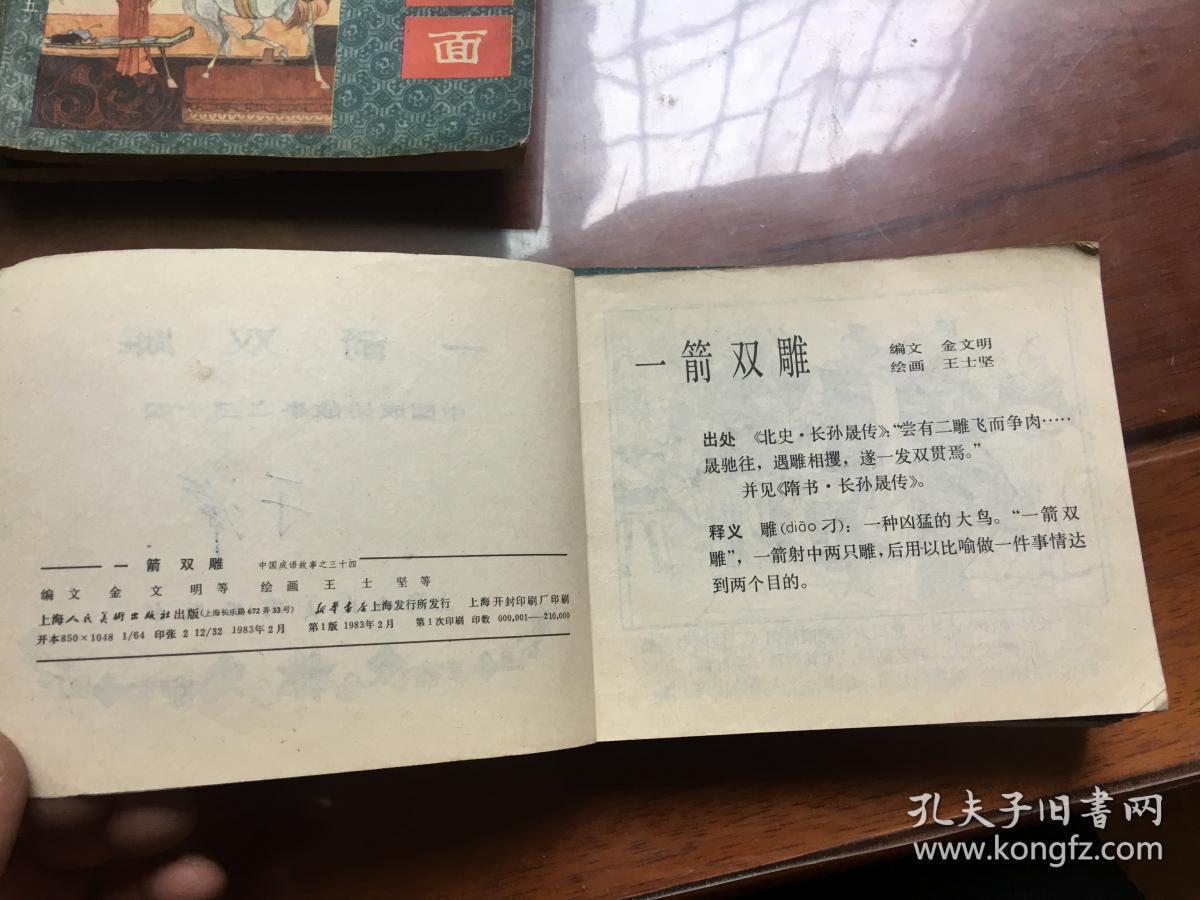 五
面
一箭双雕
中国成语故事之三十四
一箭双雕 中国成语故事之三十四
编文 金文明等 绘画 王士坚等
上海人民美術出版社出版(上海长乐路672弄33号) 新华书店上海发行所发行 上海开封印刷厂印刷
开本850×1048 1/64 印张 2 12/32 1983年2月 第1版 1983年2月 第1次印刷 印数 000,001—210,000
一箭双雕
编文 金文明
绘画 王士坚
出处 《北史·长孙晟传》:“尝有二雕飞而争肉……
晟驰往,遇雕相攫,遂一发双贯焉。”
并见《隋书·长孙晟传》。
释义 雕(diāo 刁):一种凶猛的大鸟。“一箭双
雕”,一箭射中两只雕,后用以比喻做一件事情达
到两个目的。
孔夫子旧书网
www.kongfz.com